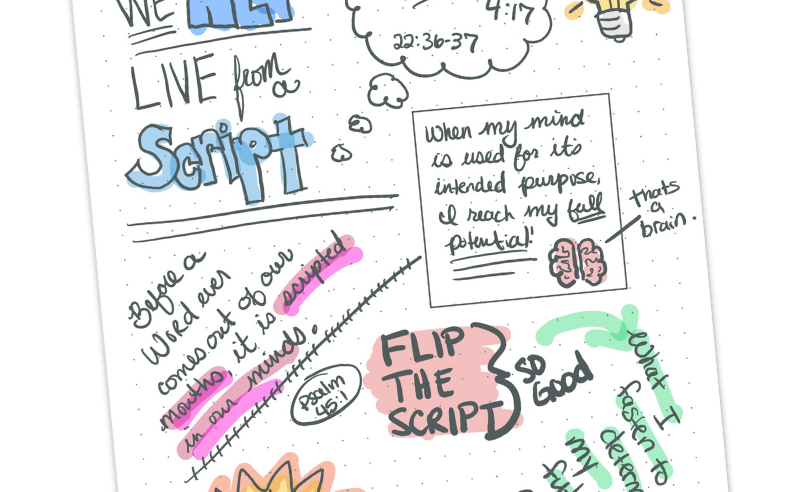 WE ALL
LIVE from
a
Script
4:17
22:36-37
When my mind
is used for it's
intended purpose,
I reach my full
potential!
thats
a
brain.
Before a
Word ever
comes out of our
mouths, it is scripted
in our minds.
Psalm
45:1
FLIP
THE
SCRIPT
SO
GOOD
What I
fasten to
my